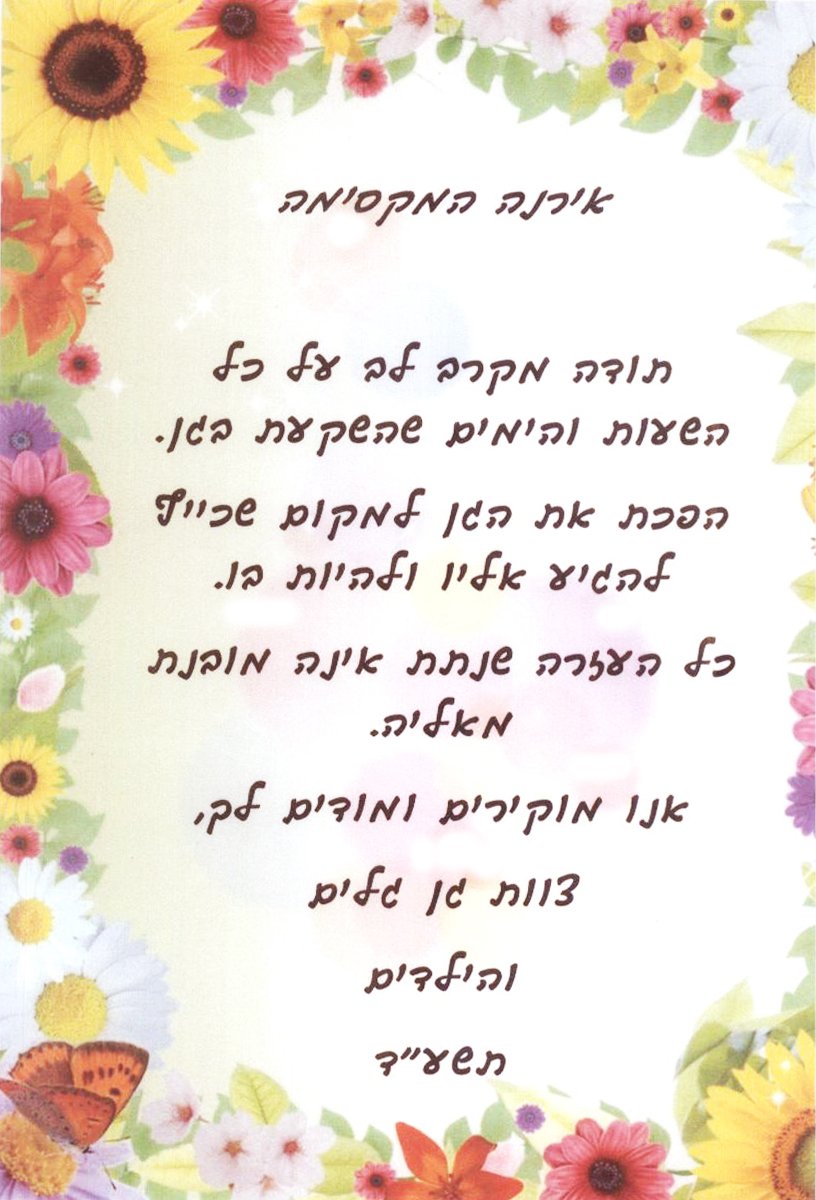 אירנה המקסימה
תודה מקרב לב על כל
השעות והימים שהשקעת בגן.
הפכת את הגן למקום שכייף
להגיע אליו ולהיות בו.
כל העזרה שנתת אינה מובנת
מאליה.
אנו מוקירים ומודים לך,
צוות גן גלים
והילדים
תשע"ד